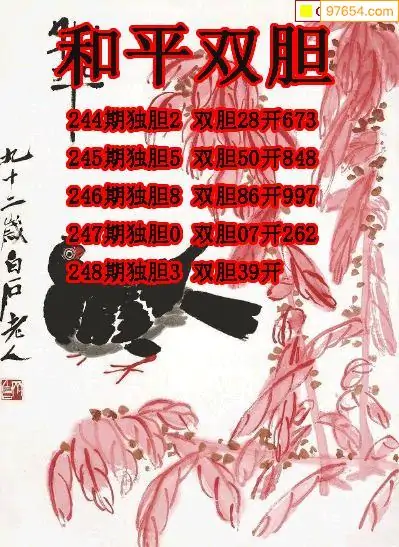 97654.com
和平双胆
244期独胆2 双胆28开673
245期独胆5 双胆50开848
246期独胆8 双胆86开997
247期独胆0 双胆07开262
248期独胆3 双胆39开
九十二岁白石老人